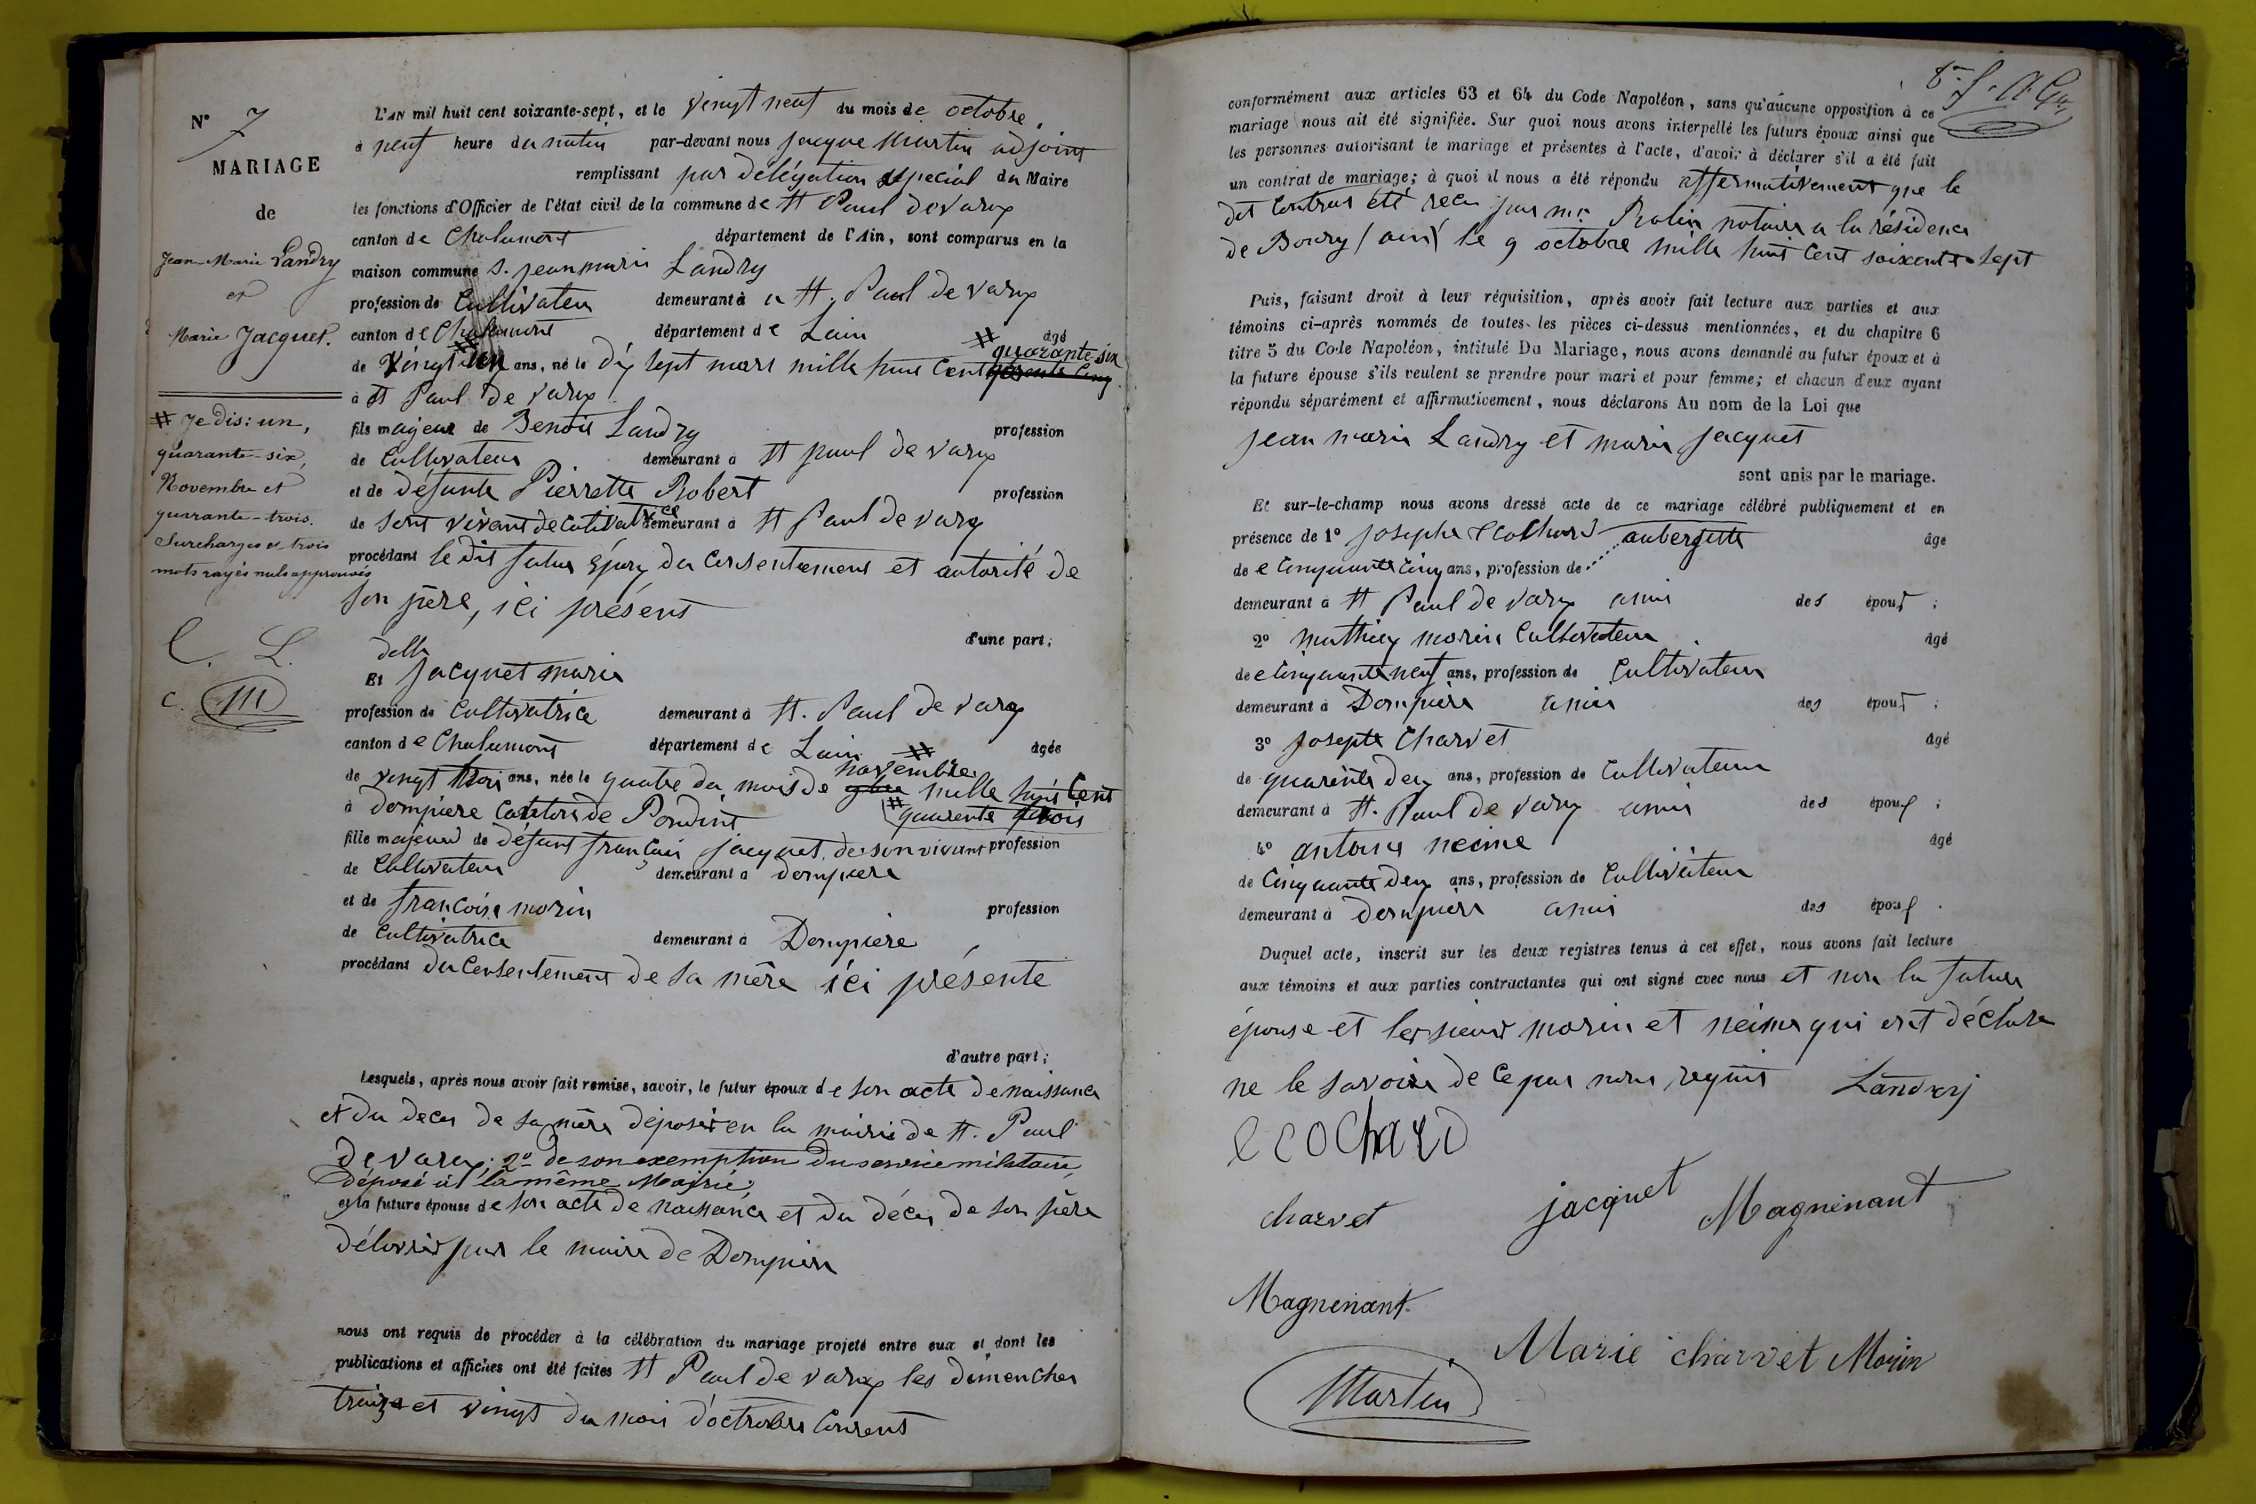 N° 7
MARIAGE
de
Jean-Marie Landry
et
Marie Jacquet.
# Je dis: un,
quarante-six,
Novembre et
quarante-trois.
Surcharges et trois
mots rayés nuls approuvés
C. L.
C. M
L'AN mil huit cent soixante-sept, et le vingt neuf du mois de octobre,
à neuf heure du matin par-devant nous jacque Martin adjoint
remplissant par délégation spécial du Maire
les fonctions d'Officier de l'état civil de la commune de St Paul de varax
canton de Chalamont département de l'Ain, sont comparus en la
maison commune S. jean marie Landry
profession de Cultivateur demeurant à a St. Paul de varax
canton de Chalamont département de Lain # âgé
de vingt un ans, né le dix sept mars mille huit cent quarante-six quarente cinq
à St Paul de varax
fils majeur de Benoit Landry profession
de Cultivateur demeurant à St paul de varax
et de défunte Pierrette Robert profession
de sont vivant de cultivatrice demeurant à St Paul de varax
procédant le dit futur Epoux du consentement et autorité de
son père, ici présent
d'une part;
delle
Et jacquet marie
profession de Cultivatrice demeurant à St. Paul de varax
canton de Chalamont département de Lain # âgée
de vingt trois ans, née le quatre du mois de novembre mille huit Cent
à dompiere Canton de Pondint # quarente trois
fille majeure de défunt françois jacquet de son vivant profession
de Cultivateur demeurant à dompiere
et de françoise morin profession
de Cultivatrice demeurant à Dompiere
procédant du Consentement de sa mère ici présente
d'autre part;
Lesquels, après nous avoir fait remise, savoir, le futur époux de son acte de naissance
et du deces de sa mère déposé en la mairie de St. Paul
de varax; 2° de son exemption du service militaire,
déposé à la même Mairie;
et la future épouse de son acte de naissance et du décès de son père
délivré par le maire de Dompiere
nous ont requis de procéder à la célébration du mariage projeté entre eux et dont les
publications et affiches ont été faites St Paul de varax les dimenches
treize et vingt du mois d'octrobre Courent
conformément aux articles 63 et 64 du Code Napoléon, sans qu'aucune opposition à ce
mariage nous ait été signifiée. Sur quoi nous avons interpellé les futurs époux ainsi que
les personnes autorisant le mariage et présentes à l'acte, d'avoir à déclarer s'il a été fait
un contrat de mariage; à quoi il nous a été répondu affermativement que le
dit Contrat été recu par me. Rolin notaire a la résidence
de Bourg (ain) le 9 octobre mille huit Cent soixente sept
Puis, faisant droit à leur réquisition, après avoir fait lecture aux parties et aux
témoins ci-après nommés de toutes les pièces ci-dessus mentionnées, et du chapitre 6
titre 5 du Code Napoléon, intitulé Du Mariage, nous avons demandé au futur époux et à
la future épouse s'ils veulent se prendre pour mari et pour femme; et chacun d'eux ayant
répondu séparément et affirmativement, nous déclarons Au nom de la Loi que
jean marie Landry et marie jacquet
sont unis par le mariage.
Et sur-le-champ nous avons dressé acte de ce mariage célébré publiquement et en
présence de 1° josephe Ecochard aubergiste âgé
de Cinquante Cinq ans, profession de
demeurant à St Paul de varax amis des époux;
2° mathieu morin Cultivateur âgé
de Cinquante neuf ans, profession de Cultivateur
demeurant à Dompiere amis des époux;
3° josepte Charvet âgé
de quarente deux ans, profession de Cultivateur
demeurant à St. Paul de varax amis des époux;
4° antoine neime âgé
de Cinquante deux ans, profession de Cultivateur
demeurant à dompiere amis des époux.
Duquel acte, inscrit sur les deux registres tenus à cet effet, nous avons fait lecture
aux témoins et aux parties contractantes qui ont signé avec nous et non la future
épouse et les sieurs morin et neime qui ont déclaré
ne le savoir de ce par nous requis Landry
ecochard
charvet jacquet Magninant
Magninant
Marie charvet Morin
Martin